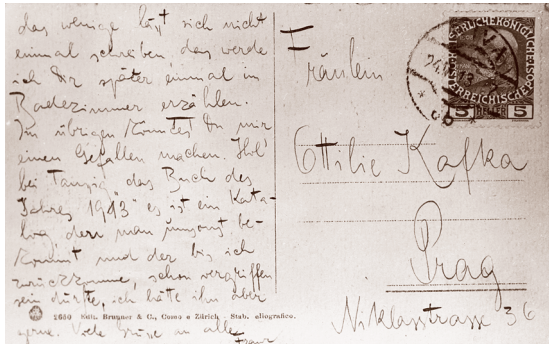 das wenige läßt sich nicht
einmal schreiben, das werde
ich Dir später einmal im
Badezimmer erzählen.
Im übrigen könntest Du mir
einen Gefallen machen. Hol'
bei Taussig "das Buch des
Jahres 1913" es ist ein Kata-
log den man umsonst be-
kommt und der bis ich
zurückkomme, schon vergriffen
sein dürfte, ich hätte ihn aber
gerne. Viele Grüße an alle
Franz
2650 Edit. Brunner & C., Como e Zürich - Stab. eliografico.
KAISERLICHEKÖNIGLICHE
ÖSTERREICHISCHEPOST
5 HELLER 5
Fräulein
Ottilie Kafka
Prag
Niklasstrasse 36